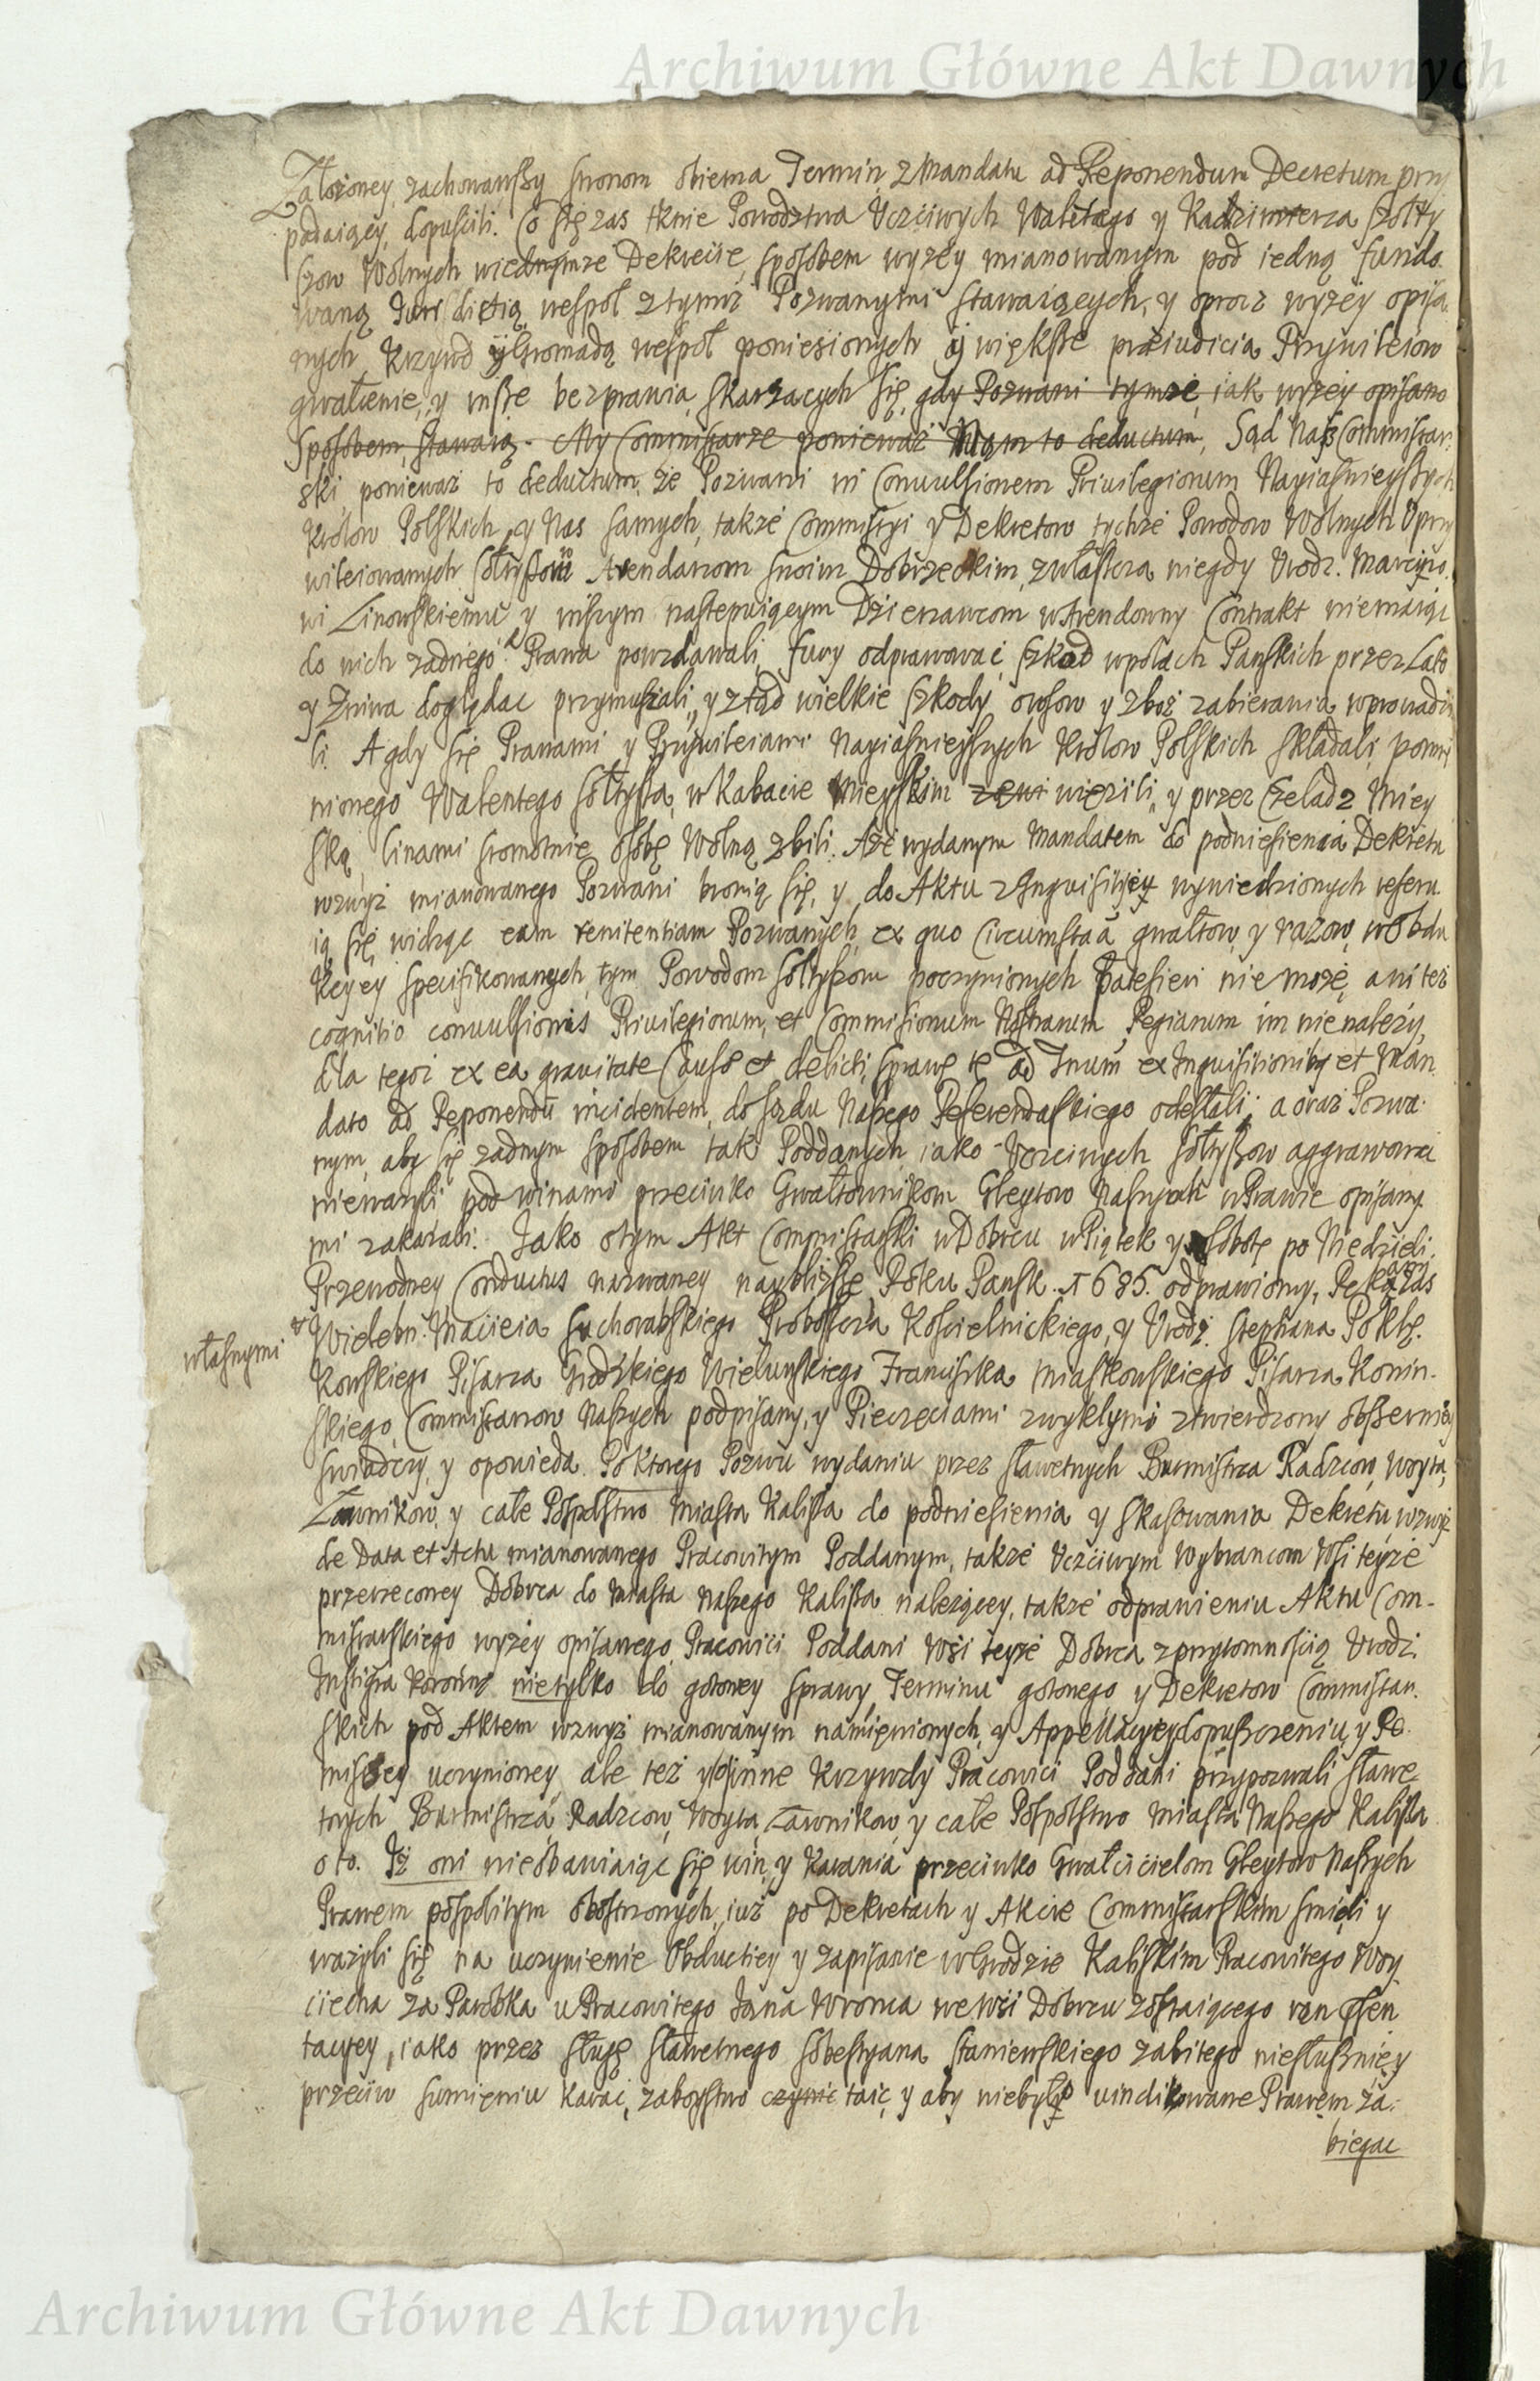 Archiwum Główne Akt Dawnych
Założoney, zachowawszy stronom obiema Termin z Mandatu ad Reponendum Decretum przy
padaiący, dopuscili. Co się zas tknie Powodztwa Uczciwych Walętego y Kazimierza Szołty
szow Wolnych wiednymze Dekrecie, sposobem wyzey mianowanym pod iedną fundo
waną Jurisdictią wespoł z tymiż Pozwanymi stawaiących, y oprocz wyżey opisa
nych Krzywd z Gromadą wespoł poniesionych, większe praeiudicia Przywileiow
gwałcenie, y insze bezprawia skarzących się, gdy Pozwani tymże, iak wyżey opisano
sposobem, stawaią. My Commissarze ponieważ Nam to deductum, Sąd Nasz Commissar
ski ponieważ to deductum, że Pozwani in Convulsionem Privilegiorum Nayiasnieyszych
Krolow Polskich, y Nas samych, także Commissyi y Dekretow tychże Powodow Wolnych Uprzy
wileiowanych Sołtyssow Arendarzom swoim Dobrzeckim, zwłaszcza niegdy Urodz. Marcyno
wi Linowskiemu y inszym następuiącym Dzierzawcom w Arendowny Contrakt niemaiąc
do nich żadnego Prawa powzdawali, fury odprawować, szkod w polach Panskich przez Lato
y Zniwa doglądac przymuszali, y ztąd wielkie szkody, owsow y zboż zabierania wprowadzi
li. A gdy się Prawami y Przywileiami Nayiasnieyszych Krolow Polskich składali, pomie
nionego Walentego Sołtysa, w Kabacie Mieyskim więzili, y przez Czeladz Miey
ską, linami sromotnie osobę Wolną zbili. Aże wydanym Mandatem do podniesienia Dekretu
wzwyż mianowanego Pozwani bronią się, y do Aktu z Inquisitiey wywiedzionych referu
ią się, widząc eam renitentiam Pozwanych, ex quo Circumstaã gwałtow, y razow, w Obdu
kcyey specifikowanych, tym Powodom Sołtyszom poczynionych patefieri nie może, ani też
cognitio convulsionis Privilegiorum, et Commisionum Nostrarum, Regiarum im nie należy,
dla tegoż ex ea gravitate Causae et delicti, sprawę tę ad Inum̃ ex Inquisitionibq et Man
dato ad Reponendũ incidentem, do sądu Naszego Referendarskiego odesłali, a oraz Pozwa
nym, aby się żadnym sposobem tak Poddanych, iako Uczciwych Sołtyszow aggrawować
nieważyli pod winami przeciwko Gwałtownikom Gleytow Naszych w Prawie opisany
mi zakazali. Jako o tym Akt Commissarski w Dobrcu w Piątek y w Sobotę po Niedzieli
Przewodney Conductus nazwaney naybliższe, Roku Pansk. 1685. odprawiony, Rękami zas
własnymi
Wielebn. Macieia Suchorabskiego Proboszcza Koscielnickiego, y Urodz. Stephana
kowskiego Pisarza Grodzkiego Wielunskiego Franciszka Miaskowskiego Pisarza Konin
skiego, Commissarzow Naszych podpisany, y Pieczęciami zwykłymi ztwierdzony obszerniey
swiadczy, y opowieda. Po ktorego Pozwu wydaniu przez sławetnych Burmistrza Radzcow, Woyta,
Ławnikow, y całe Pospolstwo Miasta Kalisza do podniesienia y skasowania Dekretu wzwyż
de Data et Actu mianowanego Pracowitym Poddanym, także Uczciwym Wybrancom Wsi teyże
przerzeconey Dobrca do Miasta Naszego Kalisza należącey, także odprawieniu Aktu Com
missarskiego wyżey opisanego Pracowici Poddani Wsi teyże Dobrca z przytomnoscią Urodz.
Instigtra Koronne nietylko do gotowey sprawy, Terminu gotowego y Dekretow Commissar
skich pod Aktem wzwyż mianowanym namienionych, y Appellacyey dopuszczeniu, y Re
missey uczynioney, ale też y o inne krzywdy Pracowici Poddani przypozwali sławe
tnych Burmistrza, Radzcow, Woyta, Ławnikow, y całe Pospolstwo Miasta Naszego Kalisza
o to. Iż oni nieobawiaiąc się win, y karania przeciwko Gwałcicielom Gleytow Naszych
Prawem pospolitym obostrzonych, iuż po Dekretach y Akcie Commissarskim smieli y
ważyli się na uczynienie Obductiey y zapisanie w Grodzie Kaliskim Pracowitego Woy
ciecha za Parobka u Pracowitego Jana Wronca we Wsi Dobrcu zostaiącego
tacyey, iako przez sługę sławetnego Sobestyana Staniewskiego zabitego niesłusznie, y
przeciw sumieniu karać, zaboystwo czynić taić, y aby niebyło vindikowane Prawem za
biegac
Archiwum Główne Akt Dawnych